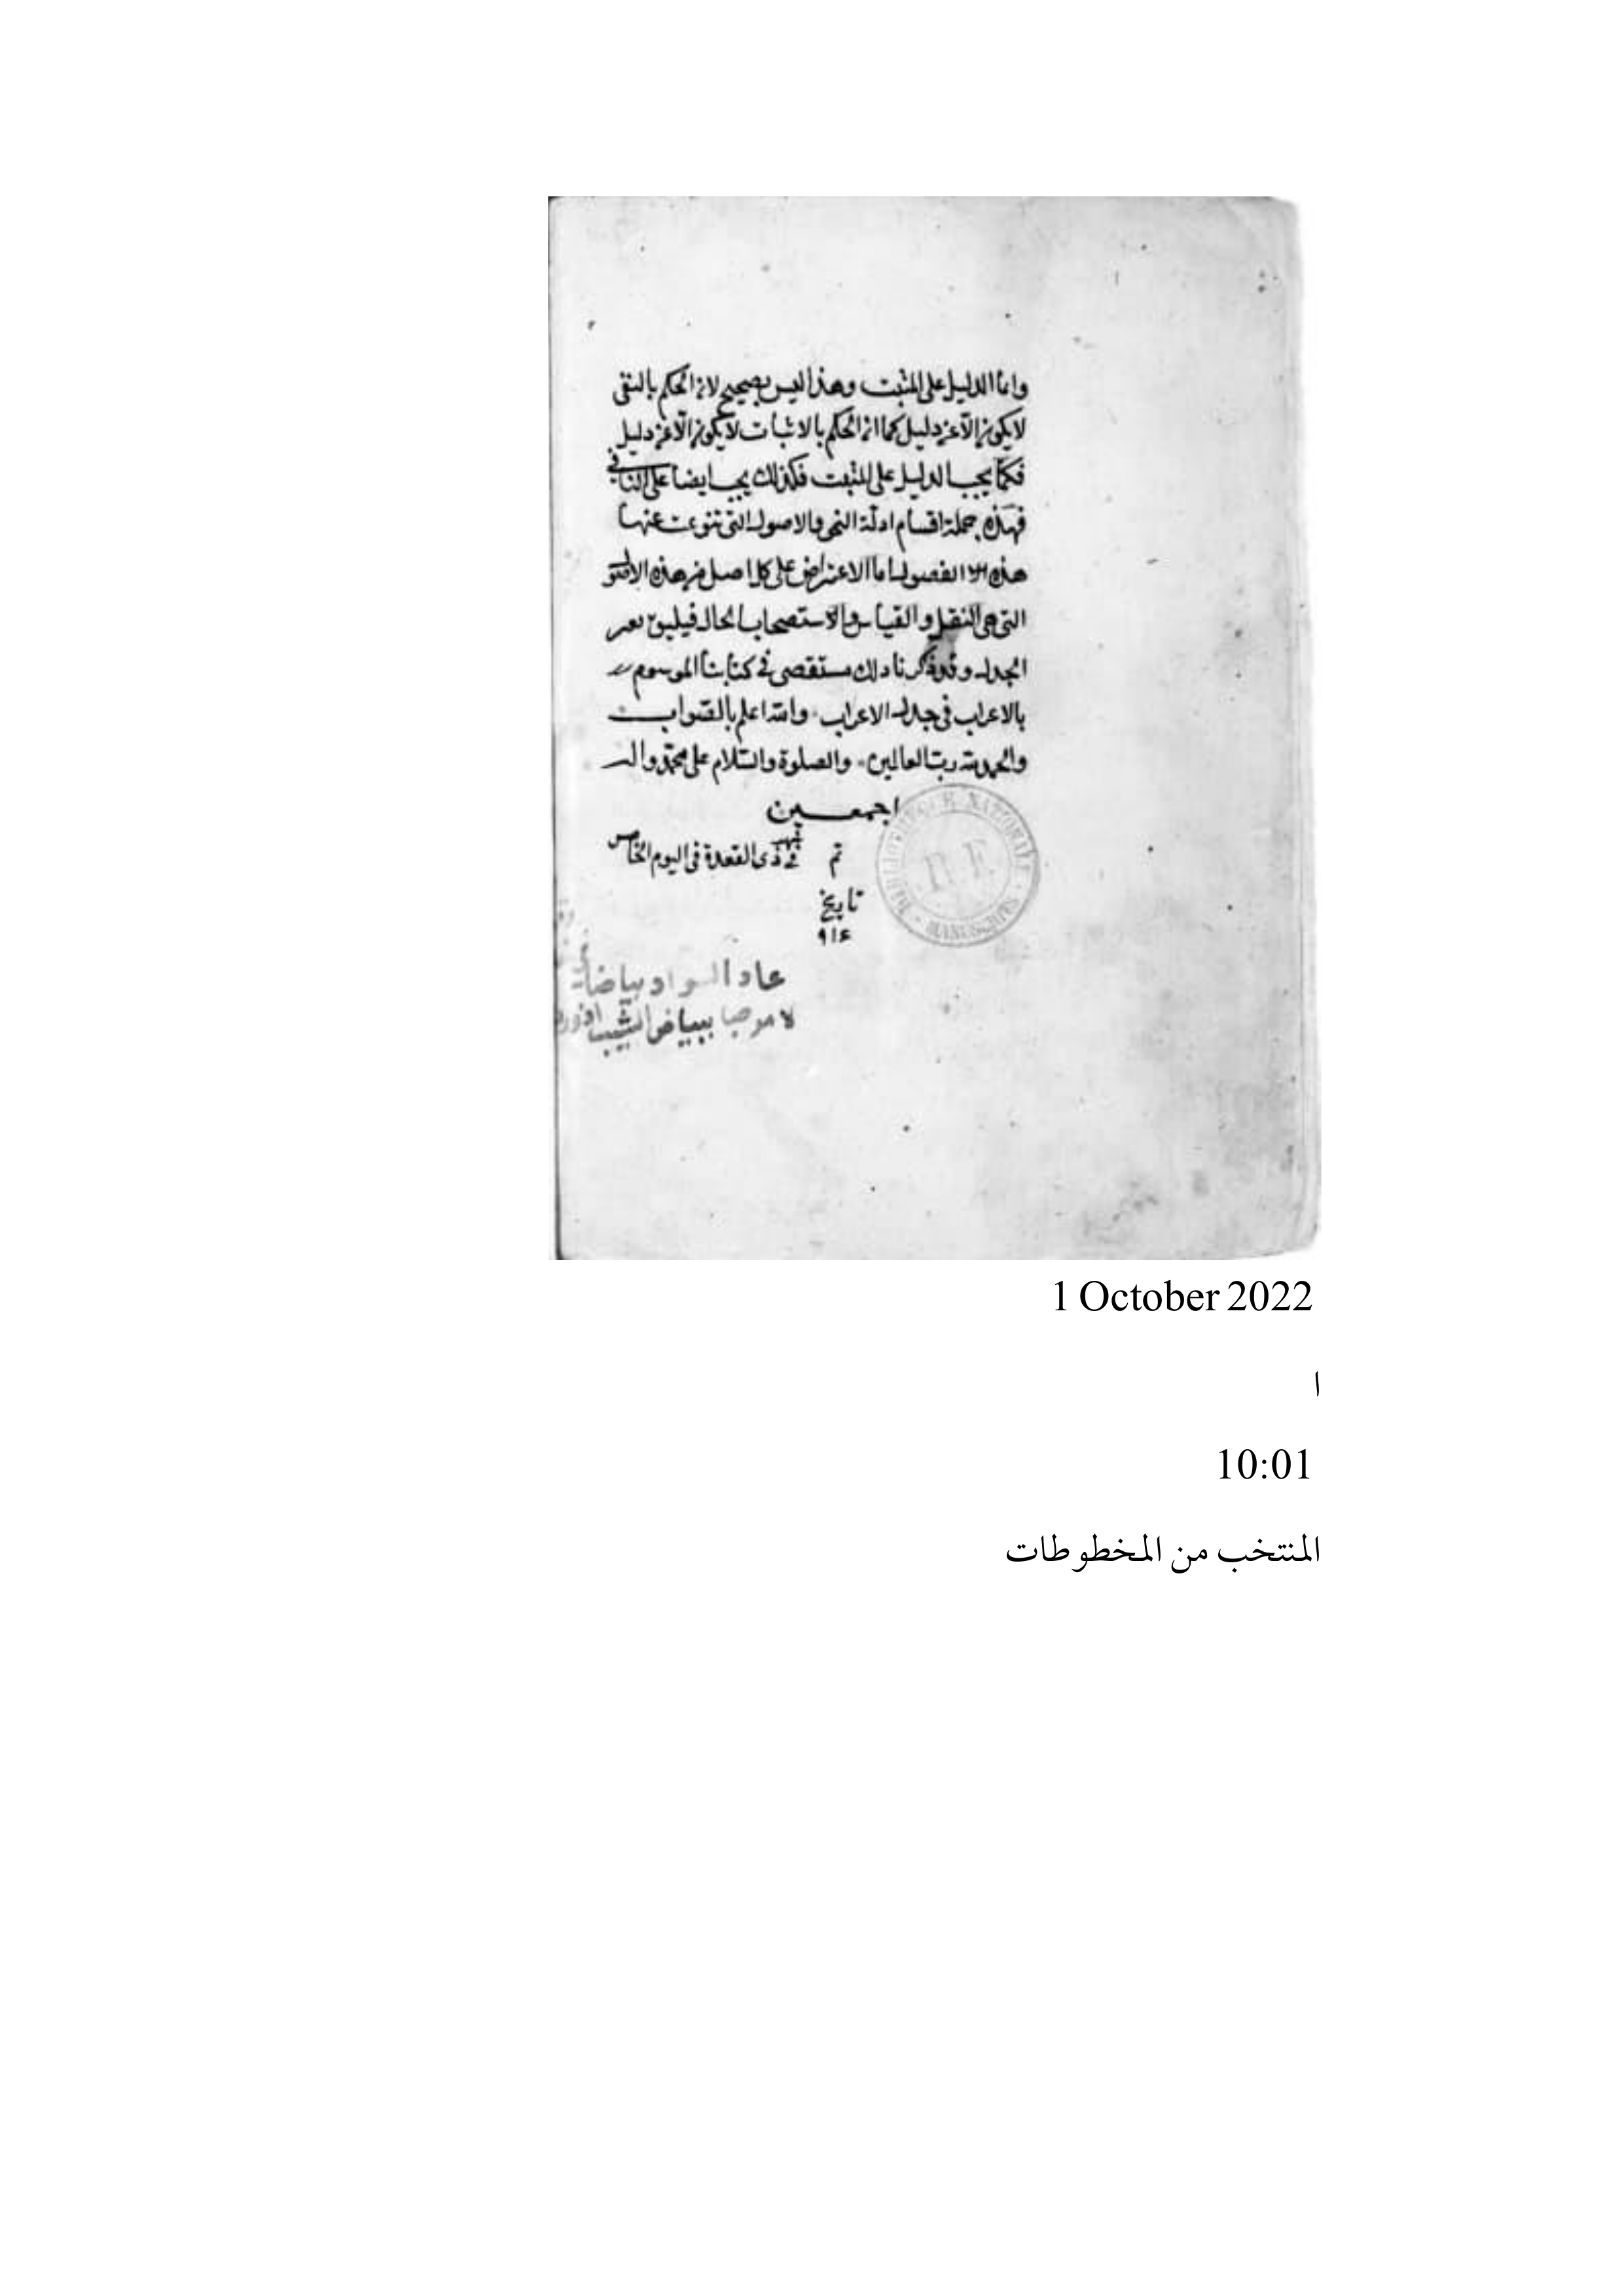 وانما الدليل على المثبت وهذا ليس بصحيح لان الحكم بالنفى
لا يكون الا عن دليل كما ان الحكم بالاثبات لا يكون الا عن دليل
فكما يجب الدليل على المثبت فكذلك يجب ايضا على النافى
فهذه جملة اقسام ادلة النحو والاصول التى تنوعت عنها
هذه الفصول اما الاعتراض على كل اصل من هذه الاصول
التى هى النقل والقياس والاستصحاب الحال فيليق
الجدل وقد ذكرنا ذلك مستقصى فى كتابنا الموسوم
بالاعراب فى جدل الاعراب والله اعلم بالصواب
والحمد لله رب العالمين والصلوة والسلام على محمد واله
اجمعين
تم فى شهر ذى القعدة فى اليوم الخامس
تاريخ
٩١٤
عاد السواد بياضا
لا مرحبا ببياض الشيب اذ
BIBLIOTHEQUE NATIONALE
R.F.
MANUSCRITS
1 October 2022
ا
10:01
المنتخب من المخطوطات